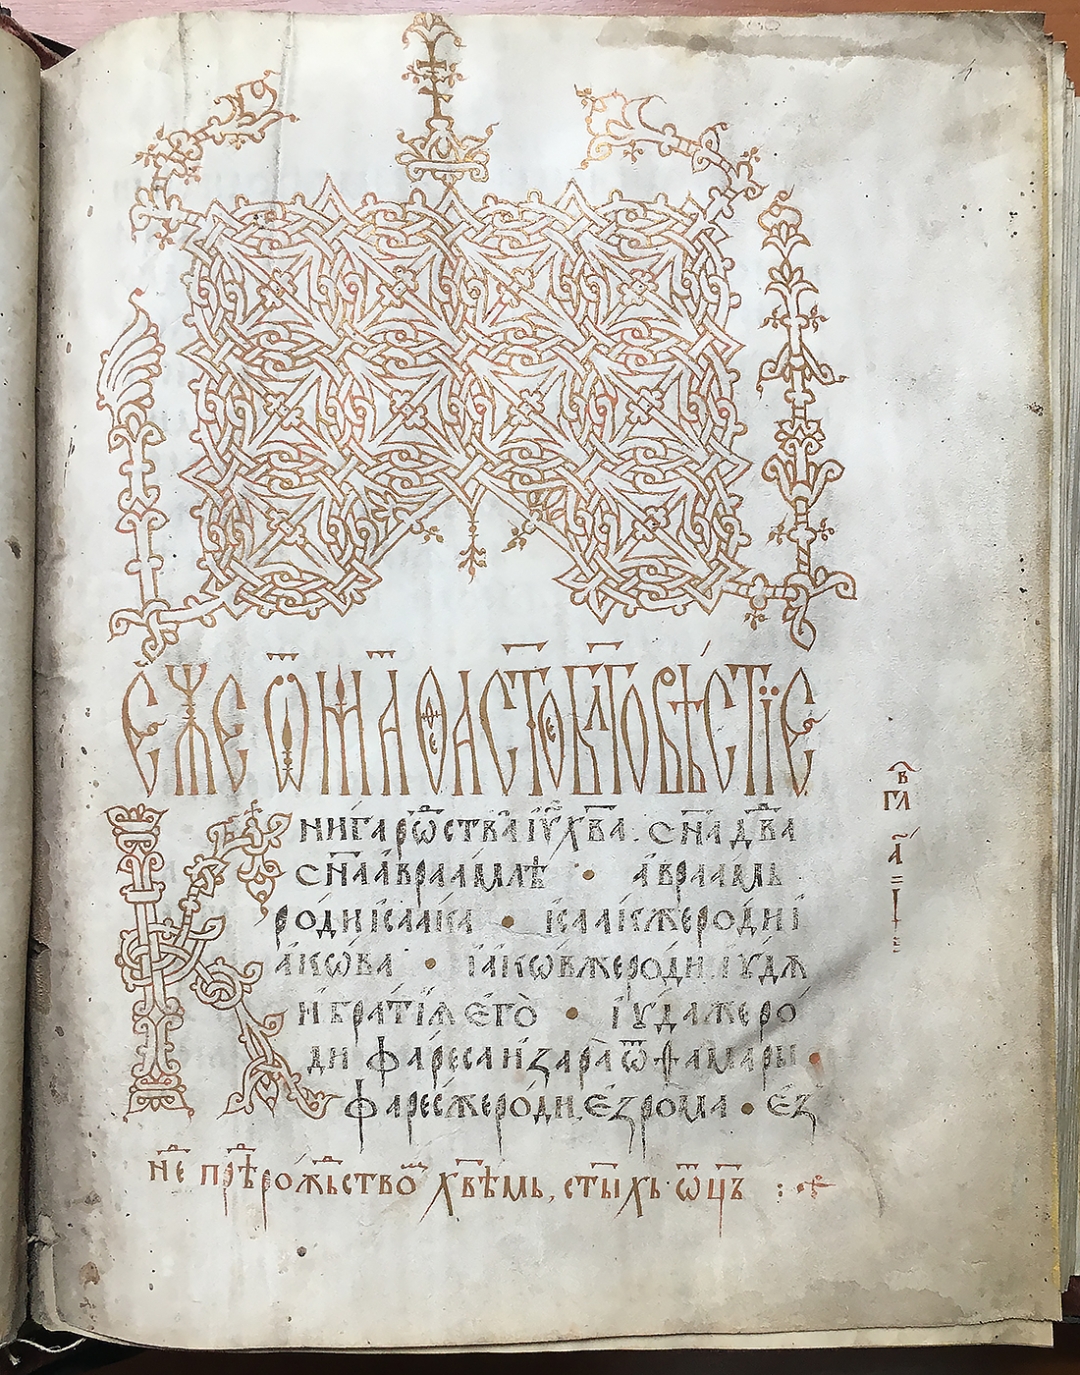 Є҆же ѿ маѳѳеа ст҃ое бл҃говѣстїе
Книга рѡⷭ҇ства і҆ѵ҃ хⷭ҇ва. сн҃а дв҃да
сн҃а авраамлѣ · авраамь
роди ісаака · ісаакже роди і
акѡва · іакѡвже роди іудѫ
и братїѧ єго · іуда же ро
ди фареса и зара ѿ ѳамары ·
фаресже роди єзрома · єз
гл҃в
а҃
нⷣе прⷣѣ рожⷣьствоⷨ хв҃ѣмь, ст҃ыхь ѿц҃ъ :